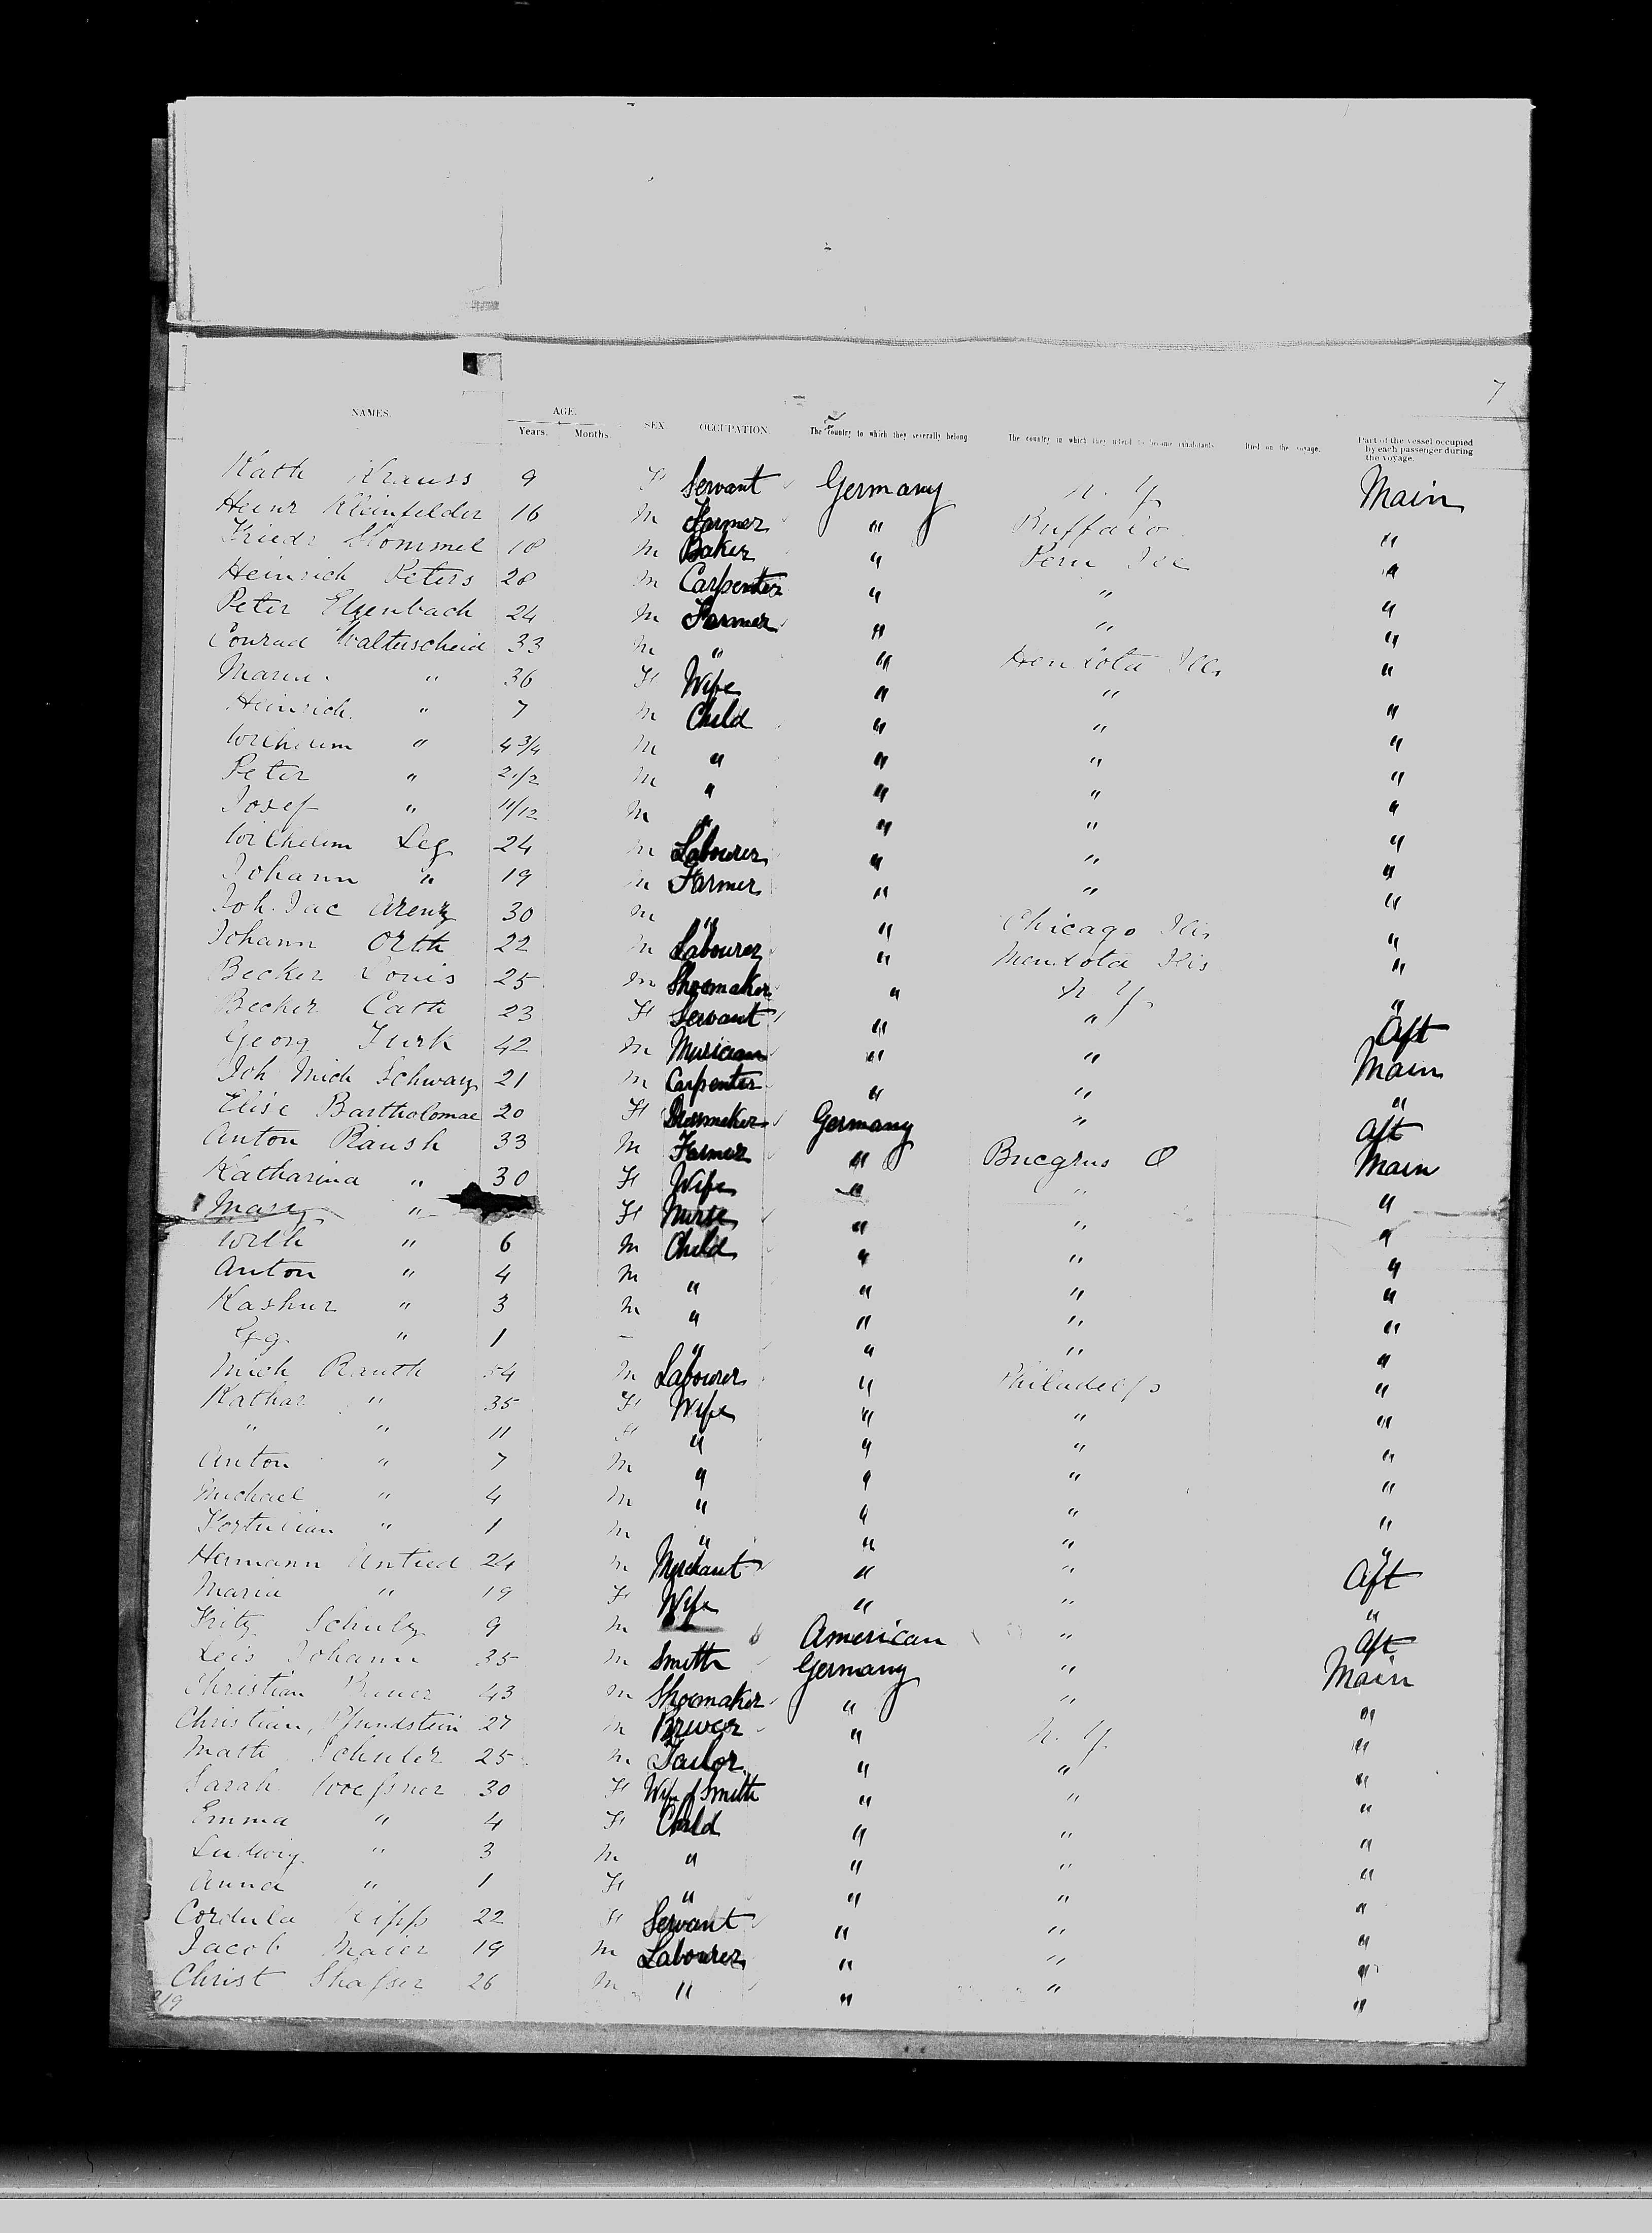 7
NAMES. AGE. Years. Months. SEX. OCCUPATION. The country to which they severally belong The country in which they intend to become inhabitants Died on the voyage. Part of the vessel occupied by each passenger during the voyage.
Kath Krauss 9 F Servant Germany N. Y. Main
Heinr Kleinfelder 16 M Farmer " Buffalo "
Friedr Hommel 18 M Baker " Peru Ill "
Heinrich Peters 28 M Carpenter " " "
Peter Elzenbach 24 M Farmer " " "
Conrad Walterscheid 33 M " " Mendota Ills "
Maria " 36 F Wife " " "
Heinrich " 7 M Child " " "
Wilhelm " 4 3/4 M " " " "
Peter " 2 1/2 M " " " "
Josef " 11/12 M " " " "
Wilhelm Leg 24 M Labourer " " "
Johann " 19 M Farmer " " "
Joh. Jac Arenz 30 M " " Chicago Ills "
Johann Orth 22 M Labourer " Mendota Ills "
Becker Louis 25 M Shoemaker " N. Y. "
Becker Cath 23 F Servant " " Aft
Georg Turk 42 M Musician " " Main
Joh Mich Schwarz 21 M Carpenter " " "
Elise Bartholomae 20 F Dressmaker Germany " Aft
Anton Raush 33 M Farmer " Bucyrus O Main
Katharina " 30 F Wife " " "
Mary " F Nurse " " "
Wilh " 6 M Child " " "
Anton " 4 M " " " "
Kashur " 3 M " " " "
" 1 - " " " "
Mich Rauth 54 M Labourer " Philadelp "
Kathar " 35 F Wife " " "
" " 11 F " " " "
Anton " 7 M " " " "
Michael " 4 M " " " "
" 1 M " " " "
Hermann Untied 24 M Merchant " " Aft
Maria " 19 F Wife " " "
Fritz Schulz 9 M American " Aft
Leis Johann 35 M Smith Germany " Main
Christian Bauer 43 M Shoemaker " " "
Christian Pfundstein 27 M Brewer " N. Y. "
Math Schuler 25 M Tailor " " "
Sarah Woessner 30 F Wife of Smith " " "
Emma " 4 F Child " " "
Ludwig " 3 M " " " "
Anna " 1 F " " " "
Cordula Kipp 22 F Servant " " "
Jacob Maier 19 M Labourer " " "
Christ Shafser 26 M " " " "